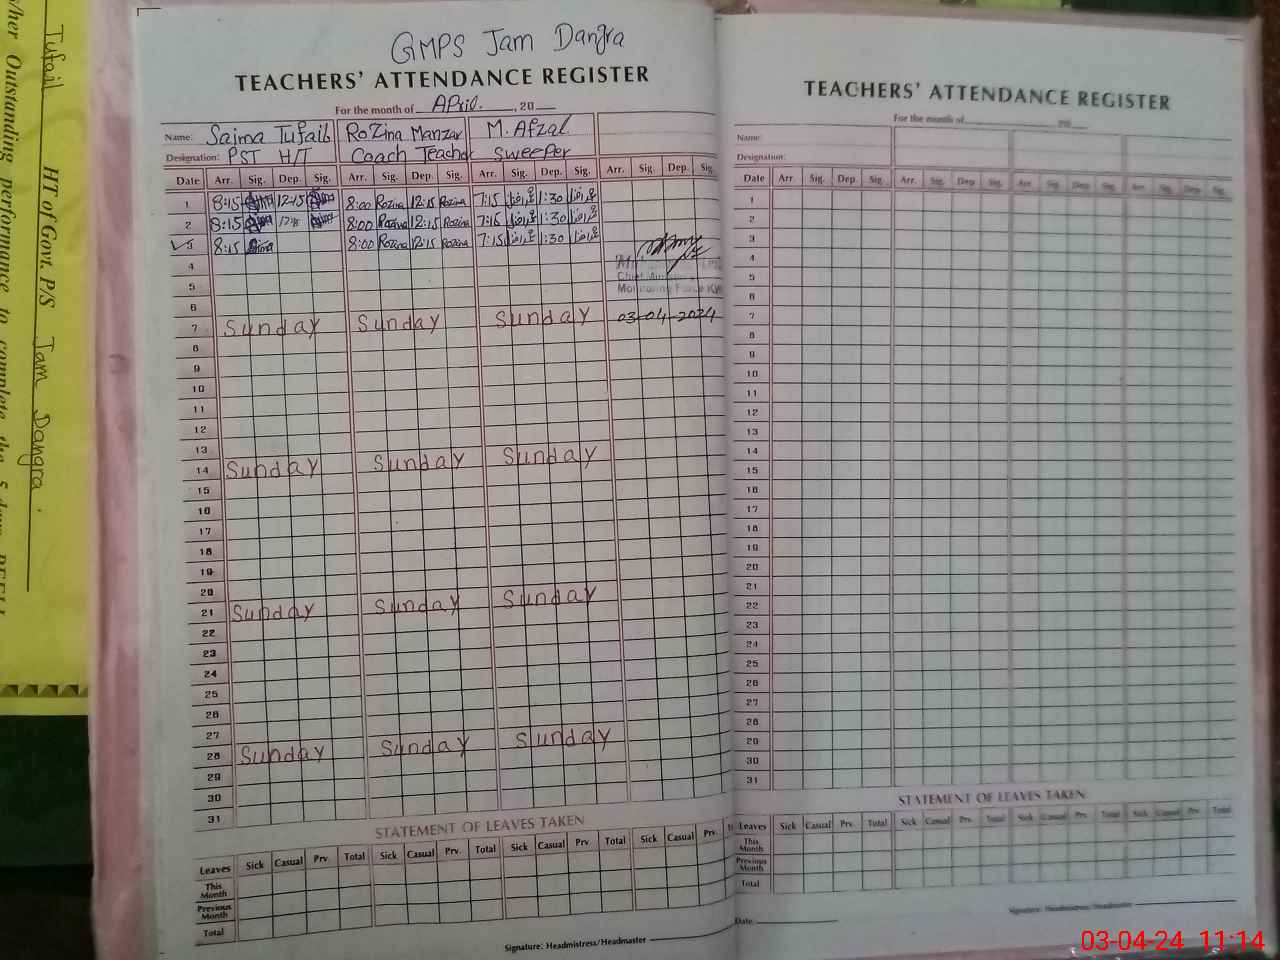 Tufail
HT of Govt. P/S Jam Dangra.
/her Outstanding performance to complete the 5 days
GMPS Jam Dangra
TEACHERS' ATTENDANCE REGISTER
For the month of April. , 20
Name: Saima Tufail Rozina Manzar M. Afzal
Designation: PST H/T Coach Teacher Sweeper
Date Arr. Sig. Dep. Sig. Arr. Sig. Dep. Sig. Arr. Sig. Dep. Sig. Arr. Sig. Dep. Sig.
1 8:15 12:15 8:00 Rozina 12:15 Rozina 7:15 1:30
2 8:15 8:00 Rozina 12:15 Rozina 7:15 1:30
3 8:15 Saima 8:00 Rozina 12:15 Rozina 7:15 1:30
4
5
Monitoring Force
6
7 Sunday Sunday Sunday 03-04-2024
8
9
10
11
12
13
14 Sunday Sunday Sunday
15
16
17
18
19
20
21 Sunday Sunday Sunday
22
23
24
25
26
27
28 Sunday Sunday Sunday
29
30
31
STATEMENT OF LEAVES TAKEN
Leaves Sick Casual Prv. Total Sick Casual Prv. Total Sick Casual Prv. Total Sick Casual Prv.
This Month
Previous Month
Total
Signature: Headmistress/Headmaster
TEACHERS' ATTENDANCE REGISTER
For the month of 20
Name:
Designation:
Date Arr. Sig. Dep. Sig. Arr. Sig. Dep Sig. Arr. Sig. Dep. Sig. Arr. Sig. Dep. Sig.
1
2
3
4
5
6
7
8
9
10
11
12
13
14
15
16
17
18
19
20
21
22
23
24
25
26
27
28
29
30
31
STATEMENT OF LEAVES TAKEN
Leaves Sick Casual Prv. Total Sick Casual Prv. Total Sick Casual Prv. Total Sick Casual Prv. Total
This Month
Previous Month
Total
Date:
Signature: Headmistress/Headmaster
03-04-24 11:14